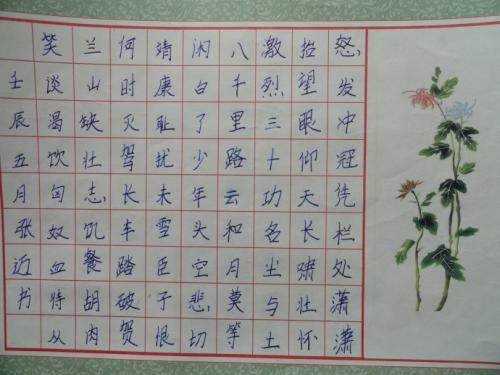 怒发冲冠凭栏处潇潇
抬望眼仰天长啸壮怀
激烈三十功名尘与土
八千里路云和月莫等
闲白了少年头空悲切
靖康耻犹未雪臣子恨
何时灭驾长车踏破贺
兰山缺壮志饥餐胡肉
笑谈渴饮匈奴血待从
壬辰五月张迈书